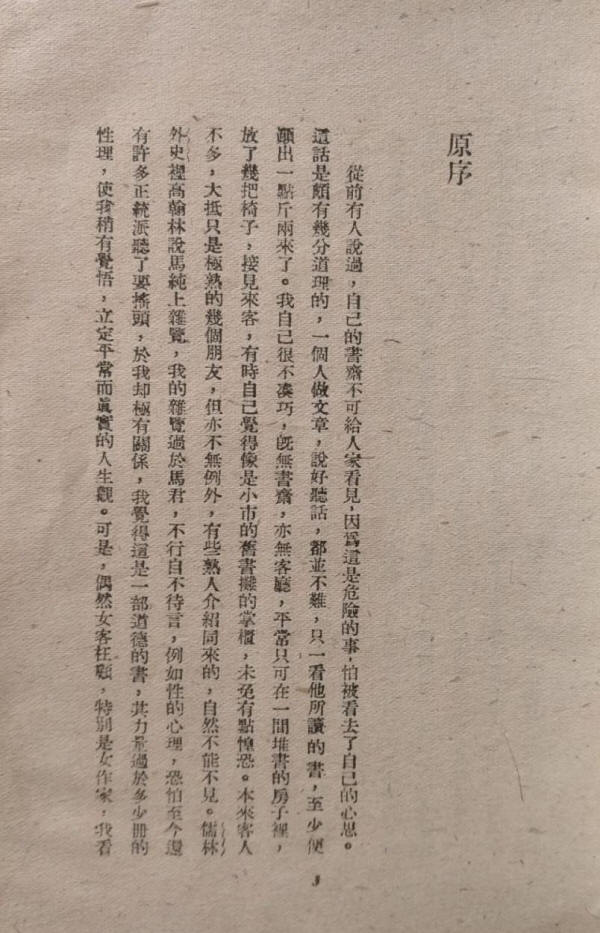 原序
從前有人說過，自己的書齋不可給人家看見，因爲這是危險的事，怕被看去了自己的心思。
這話是頗有幾分道理的，一個人做文章，說好聽話，都並不難，只一看他所讀的書，至少便
顯出一點斤兩來了。我自己很不凑巧，旣無書齋，亦無客廳，平常只可在一間堆書的房子裡，
放了幾把椅子，接見來客，有時自己覺得像是小市的舊書攤的掌櫃，未免有點惶恐。本來客人
不多，大抵只是極熟的幾個朋友，但亦不無例外，有些熟人介紹同來的，自然不能不見。儒林
外史裡高翰林說馬純上雜覽，我的雜覽過於馬君，不行自不待言，例如性的心理，恐怕至今還
有許多正統派聽了要搖頭，於我却極有關係，我覺得這是一部道德的書，其力量過於多少冊的
性理，使我稍有覺悟，立定平常而眞實的人生觀。可是，偶然女客枉顧，特別是女作家，我看
3